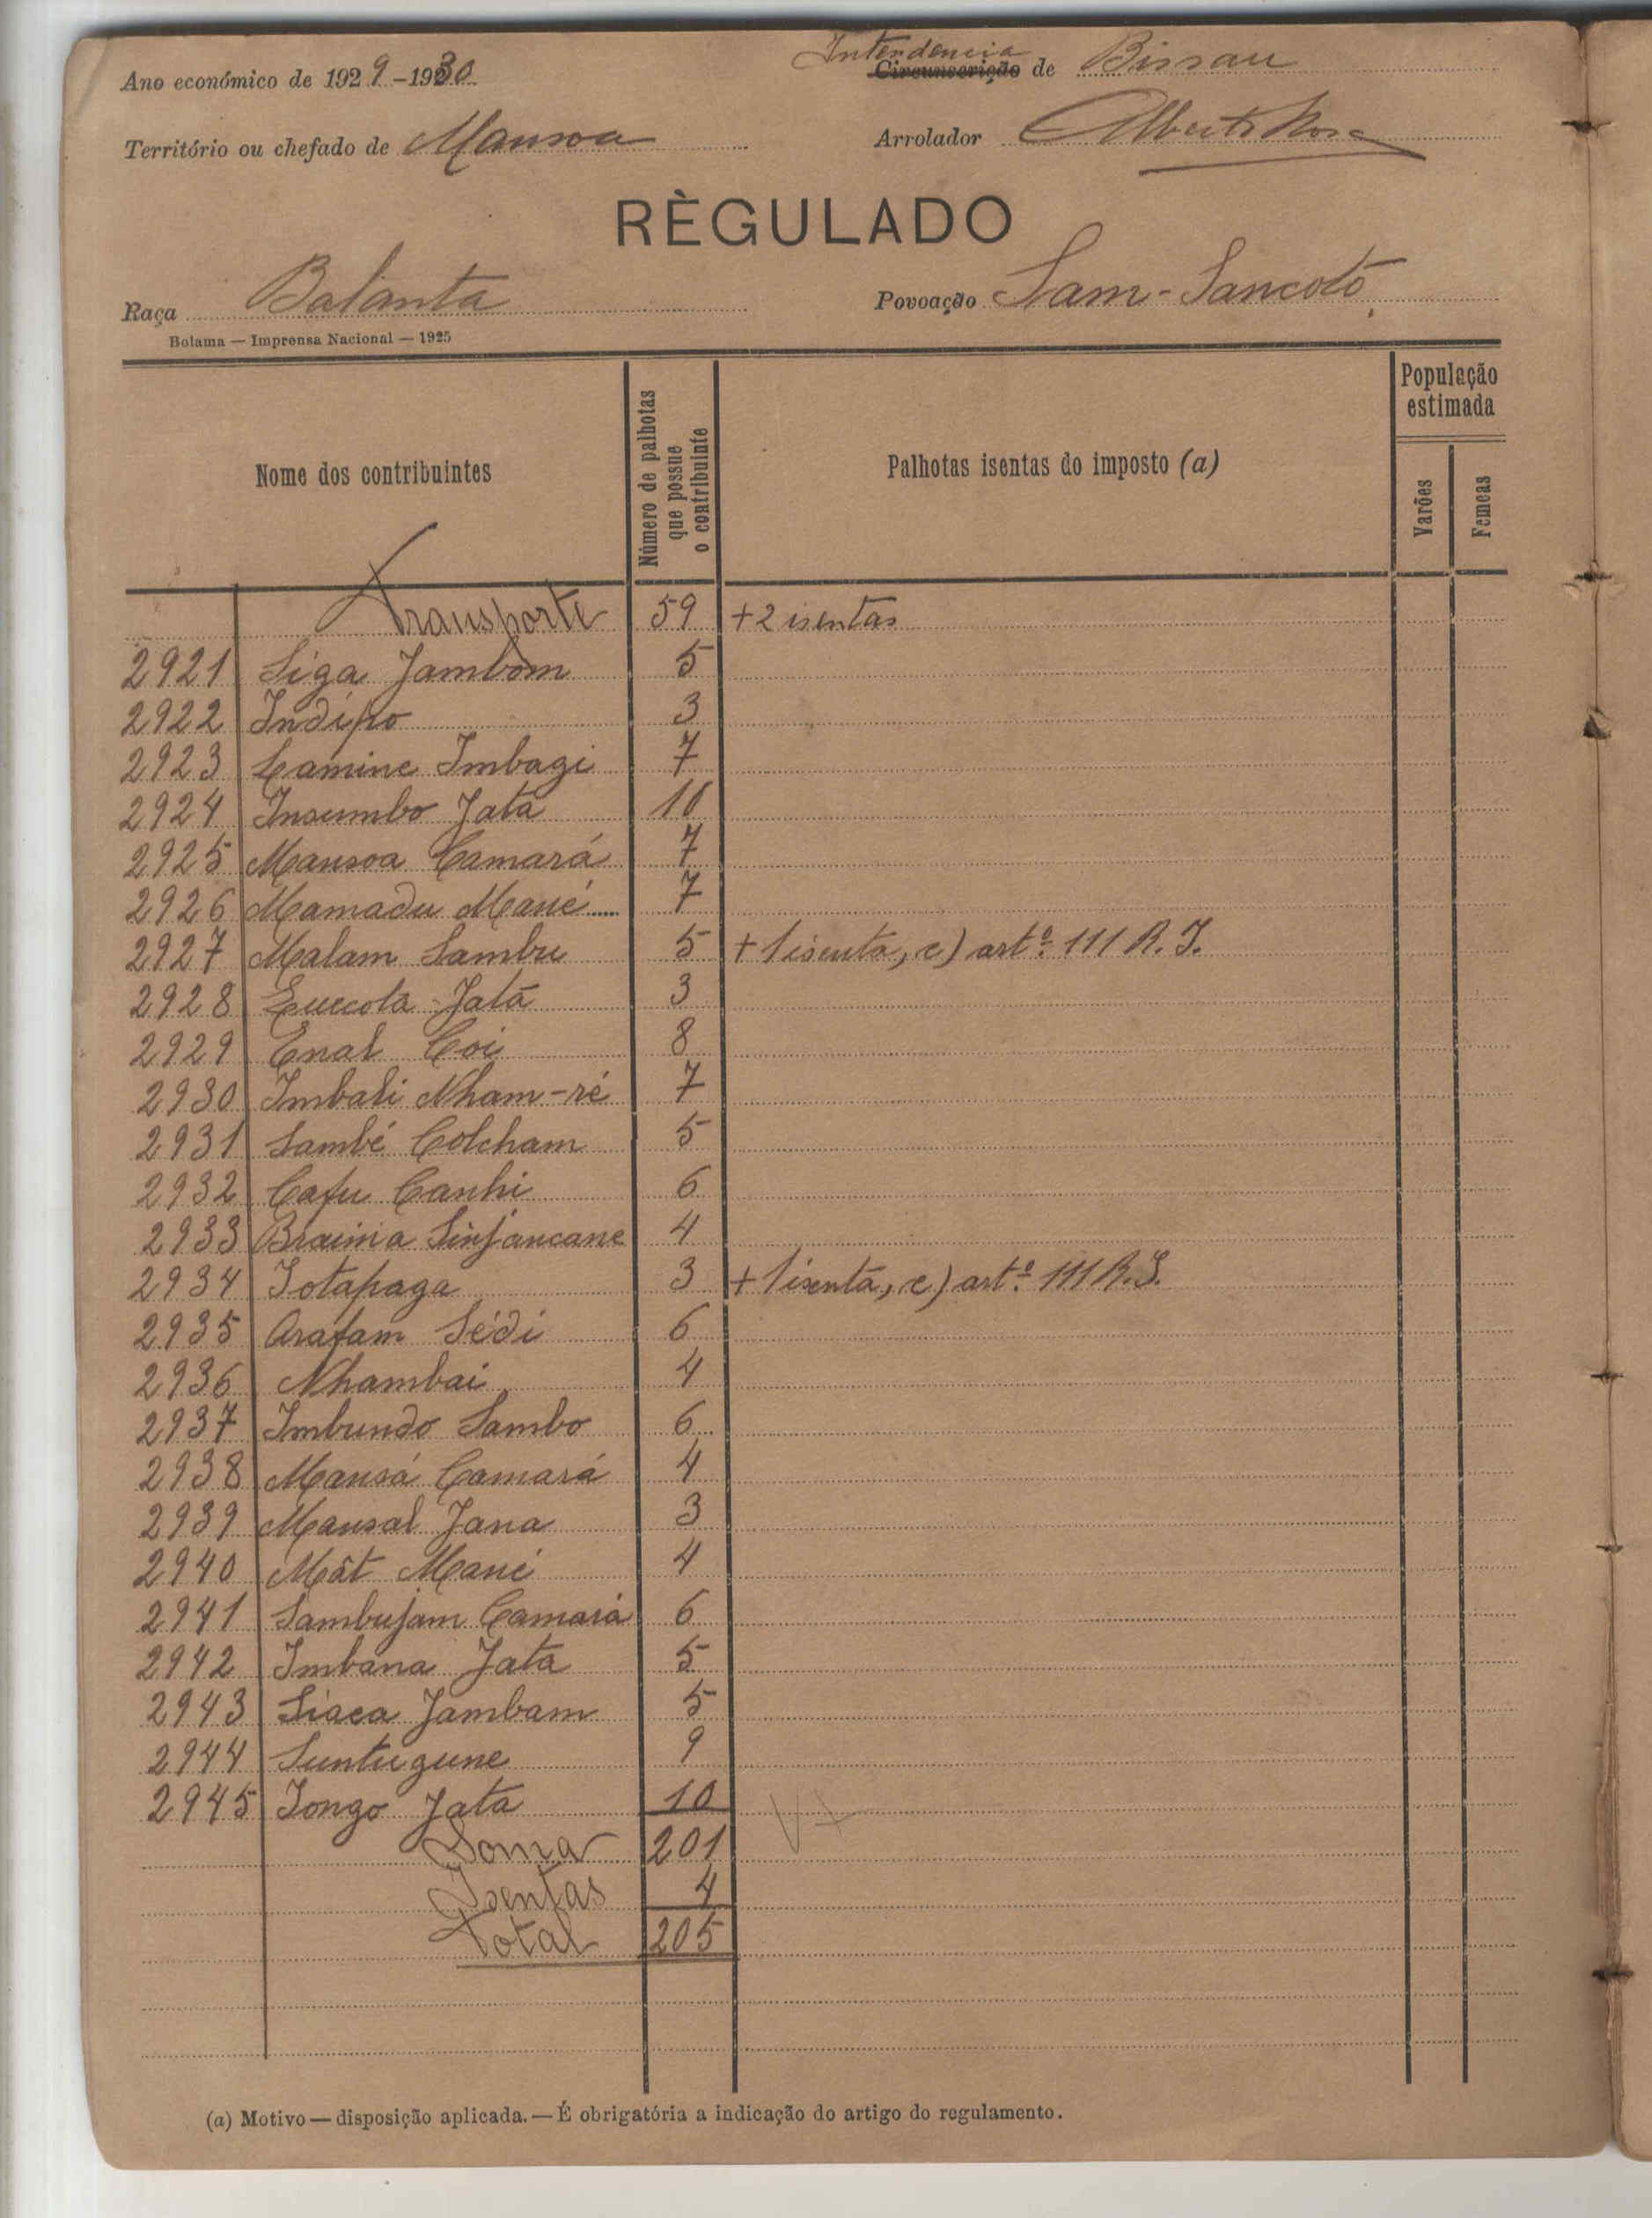 Ano económico de 1929-1930
Intendencia
Circunscrição de Bissau
Território ou chefado de Mansoa
Arrolador Alberto Rosa
RÈGULADO
Raça Balanta
Povoação Sam-Sancotó
Bolama — Imprensa Nacional — 1925
Nome dos contribuintes
Número de palhotas que possue o contribuinte
Palhotas isentas do imposto (a)
População estimada
Varões
Femeas
Transporte 59 + 2 isentas
2921 Siga Jambom 5
2922 Indipo 3
2923 Lamine Imbagi 7
2924 Insumbo Jatá 10
2925 Mansoa Camará 7
2926 Mamadu Mané 7
2927 Malam Sambu 5 + 1 isenta, c) artº 111 R. I.
2928 Jatá 3
2929 Enal Coi 8
2930 Imbali Nham-ré 7
2931 Sambé Colcham 5
2932 Cafu Canhi 6
2933 Braima Sinjancane 4
2934 Iotapaga 3 + 1 isenta, c) artº 111 R. I.
2935 Arafam Sédi 6
2936 Nhambai 4
2937 Imbundo Sambo 6
2938 Mansá Camará 4
2939 Mansal Jana 3
2940 Mât Mané 4
2941 Sambujam Camará 6
2942 Imbana Jatá 5
2943 Siaca Jambam 5
2944 Suntugune 9
2945 Iongo Jatá 10
Soma 201
Isentas 4
Total 205
(a) Motivo — disposição aplicada. — É obrigatória a indicação do artigo do regulamento.